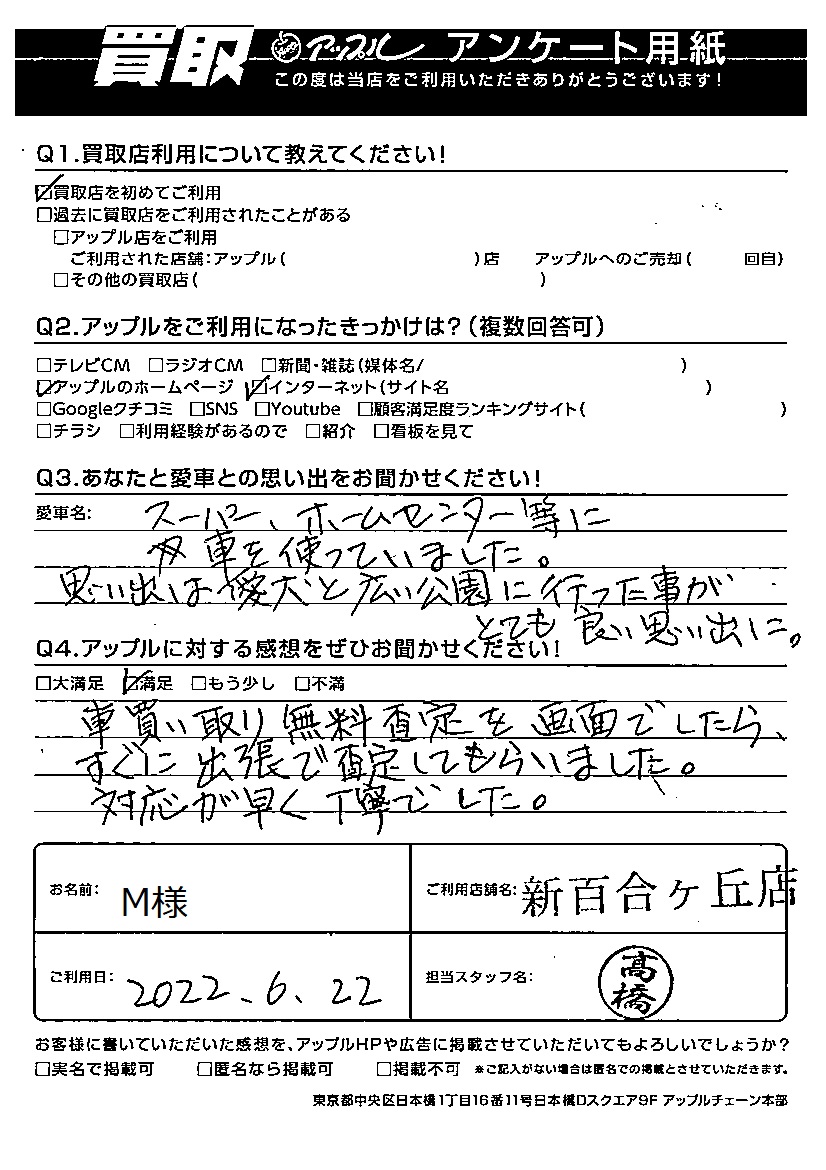 買取 アップル アンケート用紙
この度は当店をご利用いただきありがとうございます!
Q1.買取店利用について教えてください!
☑買取店を初めてご利用
□過去に買取店をご利用されたことがある
□アップル店をご利用
ご利用された店舗:アップル( )店 アップルへのご売却( 回目)
□その他の買取店( )
Q2.アップルをご利用になったきっかけは?(複数回答可)
□テレビCM □ラジオCM □新聞・雑誌(媒体名/ )
☑アップルのホームページ ☑インターネット(サイト名 )
□Googleクチコミ □SNS □Youtube □顧客満足度ランキングサイト( )
□チラシ □利用経験があるので □紹介 □看板を見て
Q3.あなたと愛車との思い出をお聞かせください!
愛車名: スーパー、ホームセンター等に
車を使っていました。
思い出は愛犬と広い公園に行った事が
とても良い思い出に。
Q4.アップルに対する感想をぜひお聞かせください!
□大満足 ☑満足 □もう少し □不満
車買い取り無料査定を画面でしたら、
すぐに出張で査定してもらいました。
対応が早く丁寧でした。
お名前: M様
ご利用店舗名: 新百合ヶ丘店
ご利用日: 2022、6、22
担当スタッフ名: 髙橋
お客様に書いていただいた感想を、アップルHPや広告に掲載させていただいてもよろしいでしょうか?
□実名で掲載可 □匿名なら掲載可 □掲載不可 ※ご記入がない場合は匿名での掲載とさせていただきます。
東京都中央区日本橋1丁目16番11号日本橋Dスクエア9F アップルチェーン本部